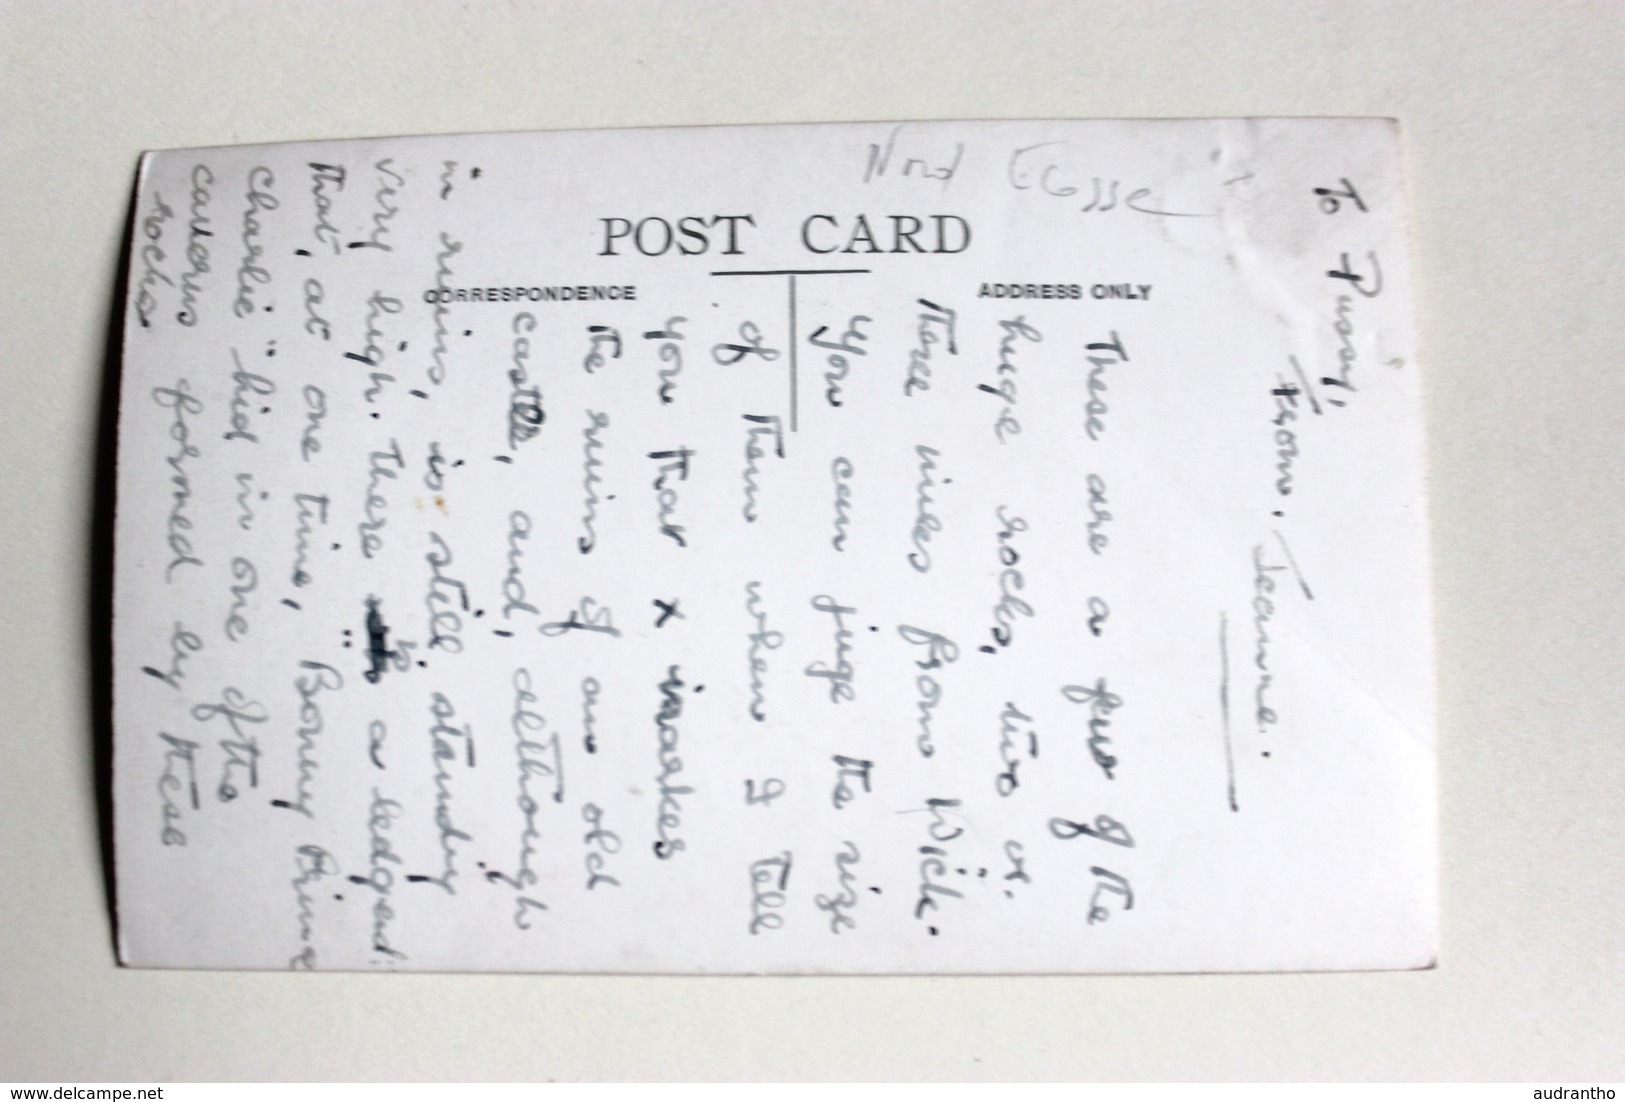 Nord Ecosse
POST CARD
CORRESPONDENCE
ADDRESS ONLY
To Pussy,
From, Jeanne.
These are a few of the
huge rocks, two or
three miles from Wick.
You can juge the size
of them when I tell
you that x marks
the ruins of an old
castle, and, although
in ruins, is still standing
very high. There is a ledgend:
that, at one time, "Bonny Prince
Charlie" hid in one of the
caverns formed by these
rocks
delcampe.net
audrantho